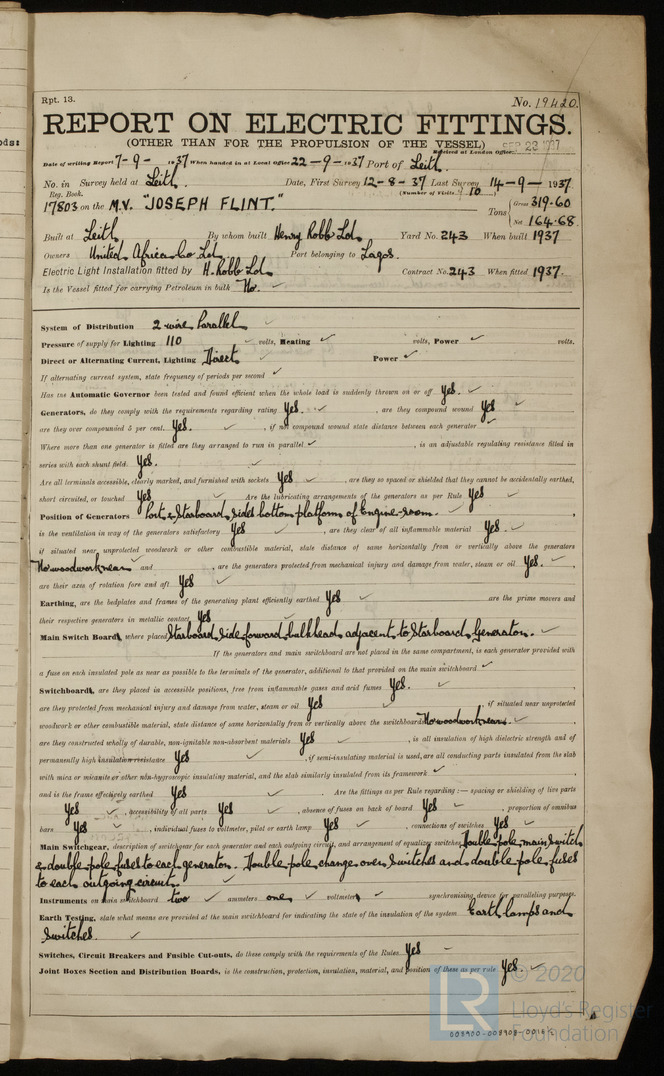 Rpt. 13.
No. 19420.
REPORT ON ELECTRIC FITTINGS.
(OTHER THAN FOR THE PROPULSION OF THE VESSEL)
Received at London Office SEP 23 1937
Date of writing Report 7-9-1937 When handed in at Local Office 22-9-1937 Port of Leith.
No. in Survey held at Leith. Date, First Survey 12-8-37 Last Survey 14-9-1937
Reg. Book. (Number of Visits 10)
17803 on the M.V. "JOSEPH FLINT." Tons { Gross 319.60
Net 164.68
Built at Leith. By whom built Henry Robb Ld. Yard No. 243 When built 1937
Owners United Africa Co Ld. Port belonging to Lagos.
Electric Light Installation fitted by H. Robb Ld. Contract No. 243 When fitted 1937.
Is the Vessel fitted for carrying Petroleum in bulk No.
System of Distribution 2 wire Parallel
Pressure of supply for Lighting 110 volts, Heating volts, Power volts.
Direct or Alternating Current, Lighting Direct Power
If alternating current system, state frequency of periods per second
Has the Automatic Governor been tested and found efficient when the whole load is suddenly thrown on or off Yes.
Generators, do they comply with the requirements regarding rating Yes. , are they compound wound Yes
are they over compounded 5 per cent. Yes. , if not compound wound state distance between each generator
Where more than one generator is fitted are they arranged to run in parallel , is an adjustable regulating resistance fitted in
series with each shunt field Yes.
Are all terminals accessible, clearly marked, and furnished with sockets Yes , are they so spaced or shielded that they cannot be accidentally earthed,
short circuited, or touched Yes Are the lubricating arrangements of the generators as per Rule Yes
Position of Generators Port & Starboard sides bottom platform of Engine-room.
is the ventilation in way of the generators satisfactory Yes , are they clear of all inflammable material Yes.
if situated near unprotected woodwork or other combustible material, state distance of same horizontally from or vertically above the generators
No woodwork near and , are the generators protected from mechanical injury and damage from water, steam or oil Yes.
are their axes of rotation fore and aft Yes
Earthing, are the bedplates and frames of the generating plant efficiently earthed Yes are the prime movers and
their respective generators in metallic contact Yes
Main Switch Boards, where placed Starboard side forward bulkhead adjacent to Starboard Generator.
If the generators and main switchboard are not placed in the same compartment, is each generator provided with
a fuse on each insulated pole as near as possible to the terminals of the generator, additional to that provided on the main switchboard
Switchboards, are they placed in accessible positions, free from inflammable gases and acid fumes Yes.
are they protected from mechanical injury and damage from water, steam or oil Yes , if situated near unprotected
woodwork or other combustible material, state distance of same horizontally from or vertically above the switchboards No woodwork near.
are they constructed wholly of durable, non-ignitable non-absorbent materials Yes , is all insulation of high dielectric strength and of
permanently high insulation resistance Yes , if semi-insulating material is used, are all conducting parts insulated from the slab
with mica or micanite or other non-hygroscopic insulating material, and the slab similarly insulated from its framework
and is the frame effectively earthed Yes Are the fittings as per Rule regarding :— spacing or shielding of live parts
Yes , accessibility of all parts Yes , absence of fuses on back of board Yes , proportion of omnibus
bars Yes , individual fuses to voltmeter, pilot or earth lamp Yes , connections of switches Yes
Main Switchgear, description of switchgear for each generator and each outgoing circuit, and arrangement of equalizer switches Double pole main switch
& double pole fuses to each generator. Double pole change over switches and double pole fuses
to each outgoing circuit.
Instruments on main switchboard two ammeters one voltmeter synchronising device for paralleling purposes.
Earth Testing, state what means are provided at the main switchboard for indicating the state of the insulation of the system Earth lamps and
Switches.
Switches, Circuit Breakers and Fusible Cut-outs, do these comply with the requirements of the Rules Yes
Joint Boxes Section and Distribution Boards, is the construction, protection, insulation, material, and position of these as per rule Yes.
LR
© 2020
Lloyd's Register
Foundation